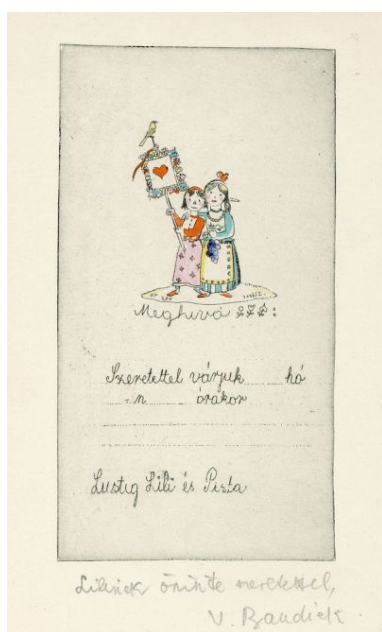 Meghívó
Szeretettel várjuk hó
n órákor
Lustig Lili és Pista
Lilinek őszinte szeretettel,
V.